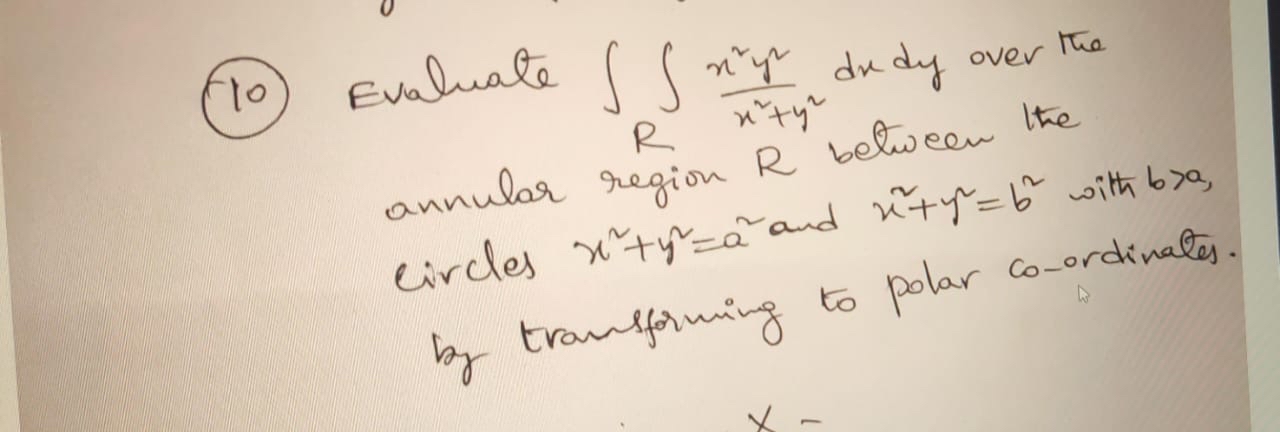 10 Evaluate ∫∫_R x²y²/(x²+y²) dx dy over the
annular region R between the
circles x²+y²=a² and x²+y²=b² with b>a,
by transforming to polar co-ordinates.